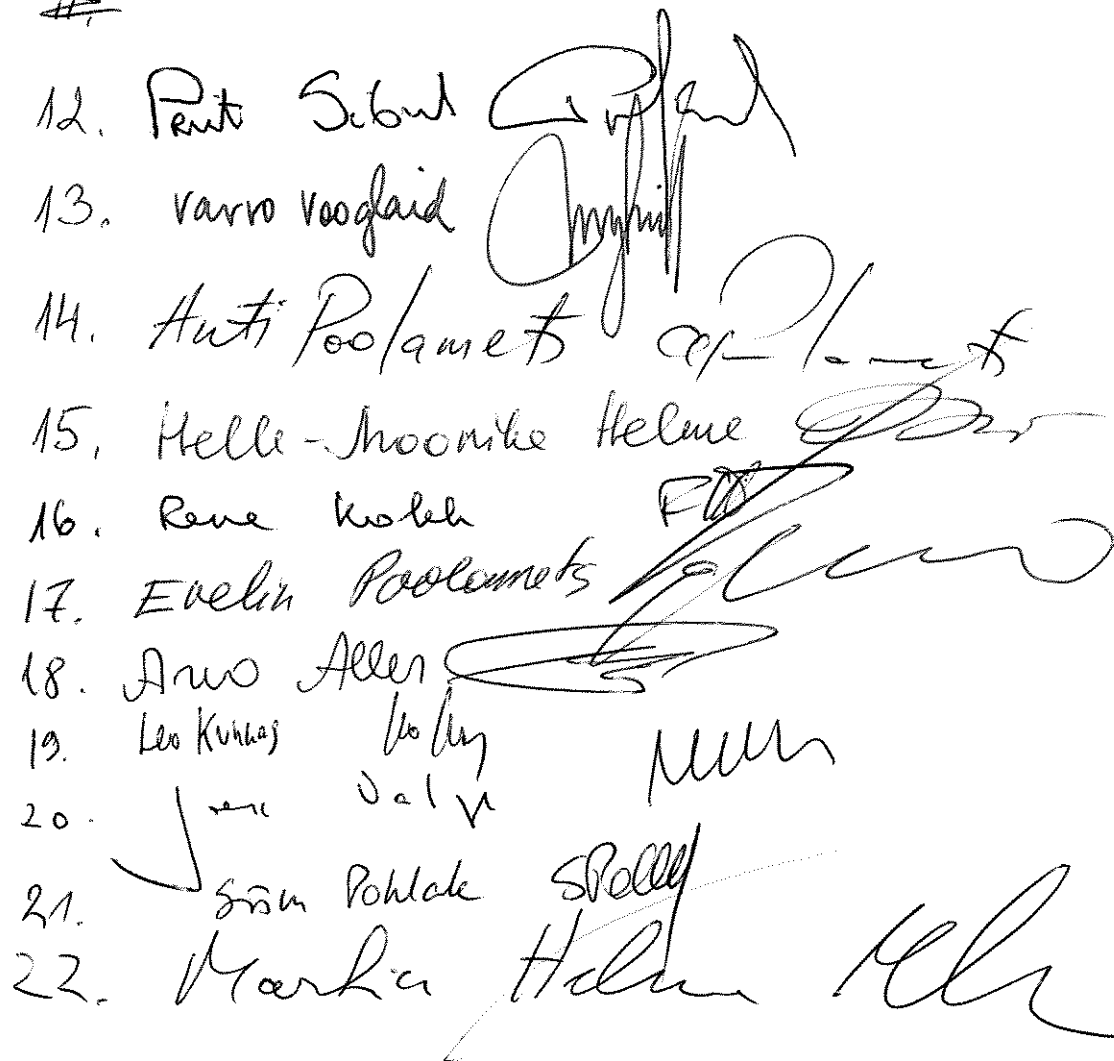 11.
12. Priit Sibul
13. Varro Vooglaid
14. Anti Poolamets
15. Helle-Moonika Helme
16. Rene Kokk
17. Evelin Poolamets
18. Arvo Aller
19. Leo Kunnas
20. Jaak Valge
21. Siim Pohlak
22. Martin Helme